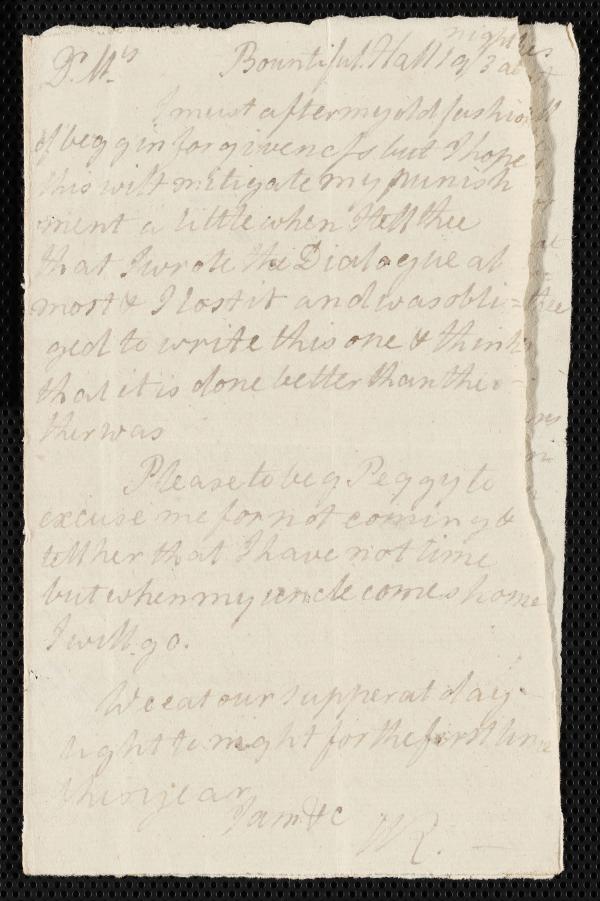 Dr. Ms. Bountiful Hall 19/3 at night
I must after my old fashion
of beggin forgiveness but I hope
this will mitigate my punish
ment a little when I tell thee
that I wrote the Dialogue al
most & I lost it and was obli=
ged to write this one & think
that it is done better than the o
ther was
Please to beg Peggy to
excuse me for not coming &
tell her that I have not time
but when my uncle comes home
I will go.
We eat our supper at day-
light to night for the first time
this year
I am &c
WR.